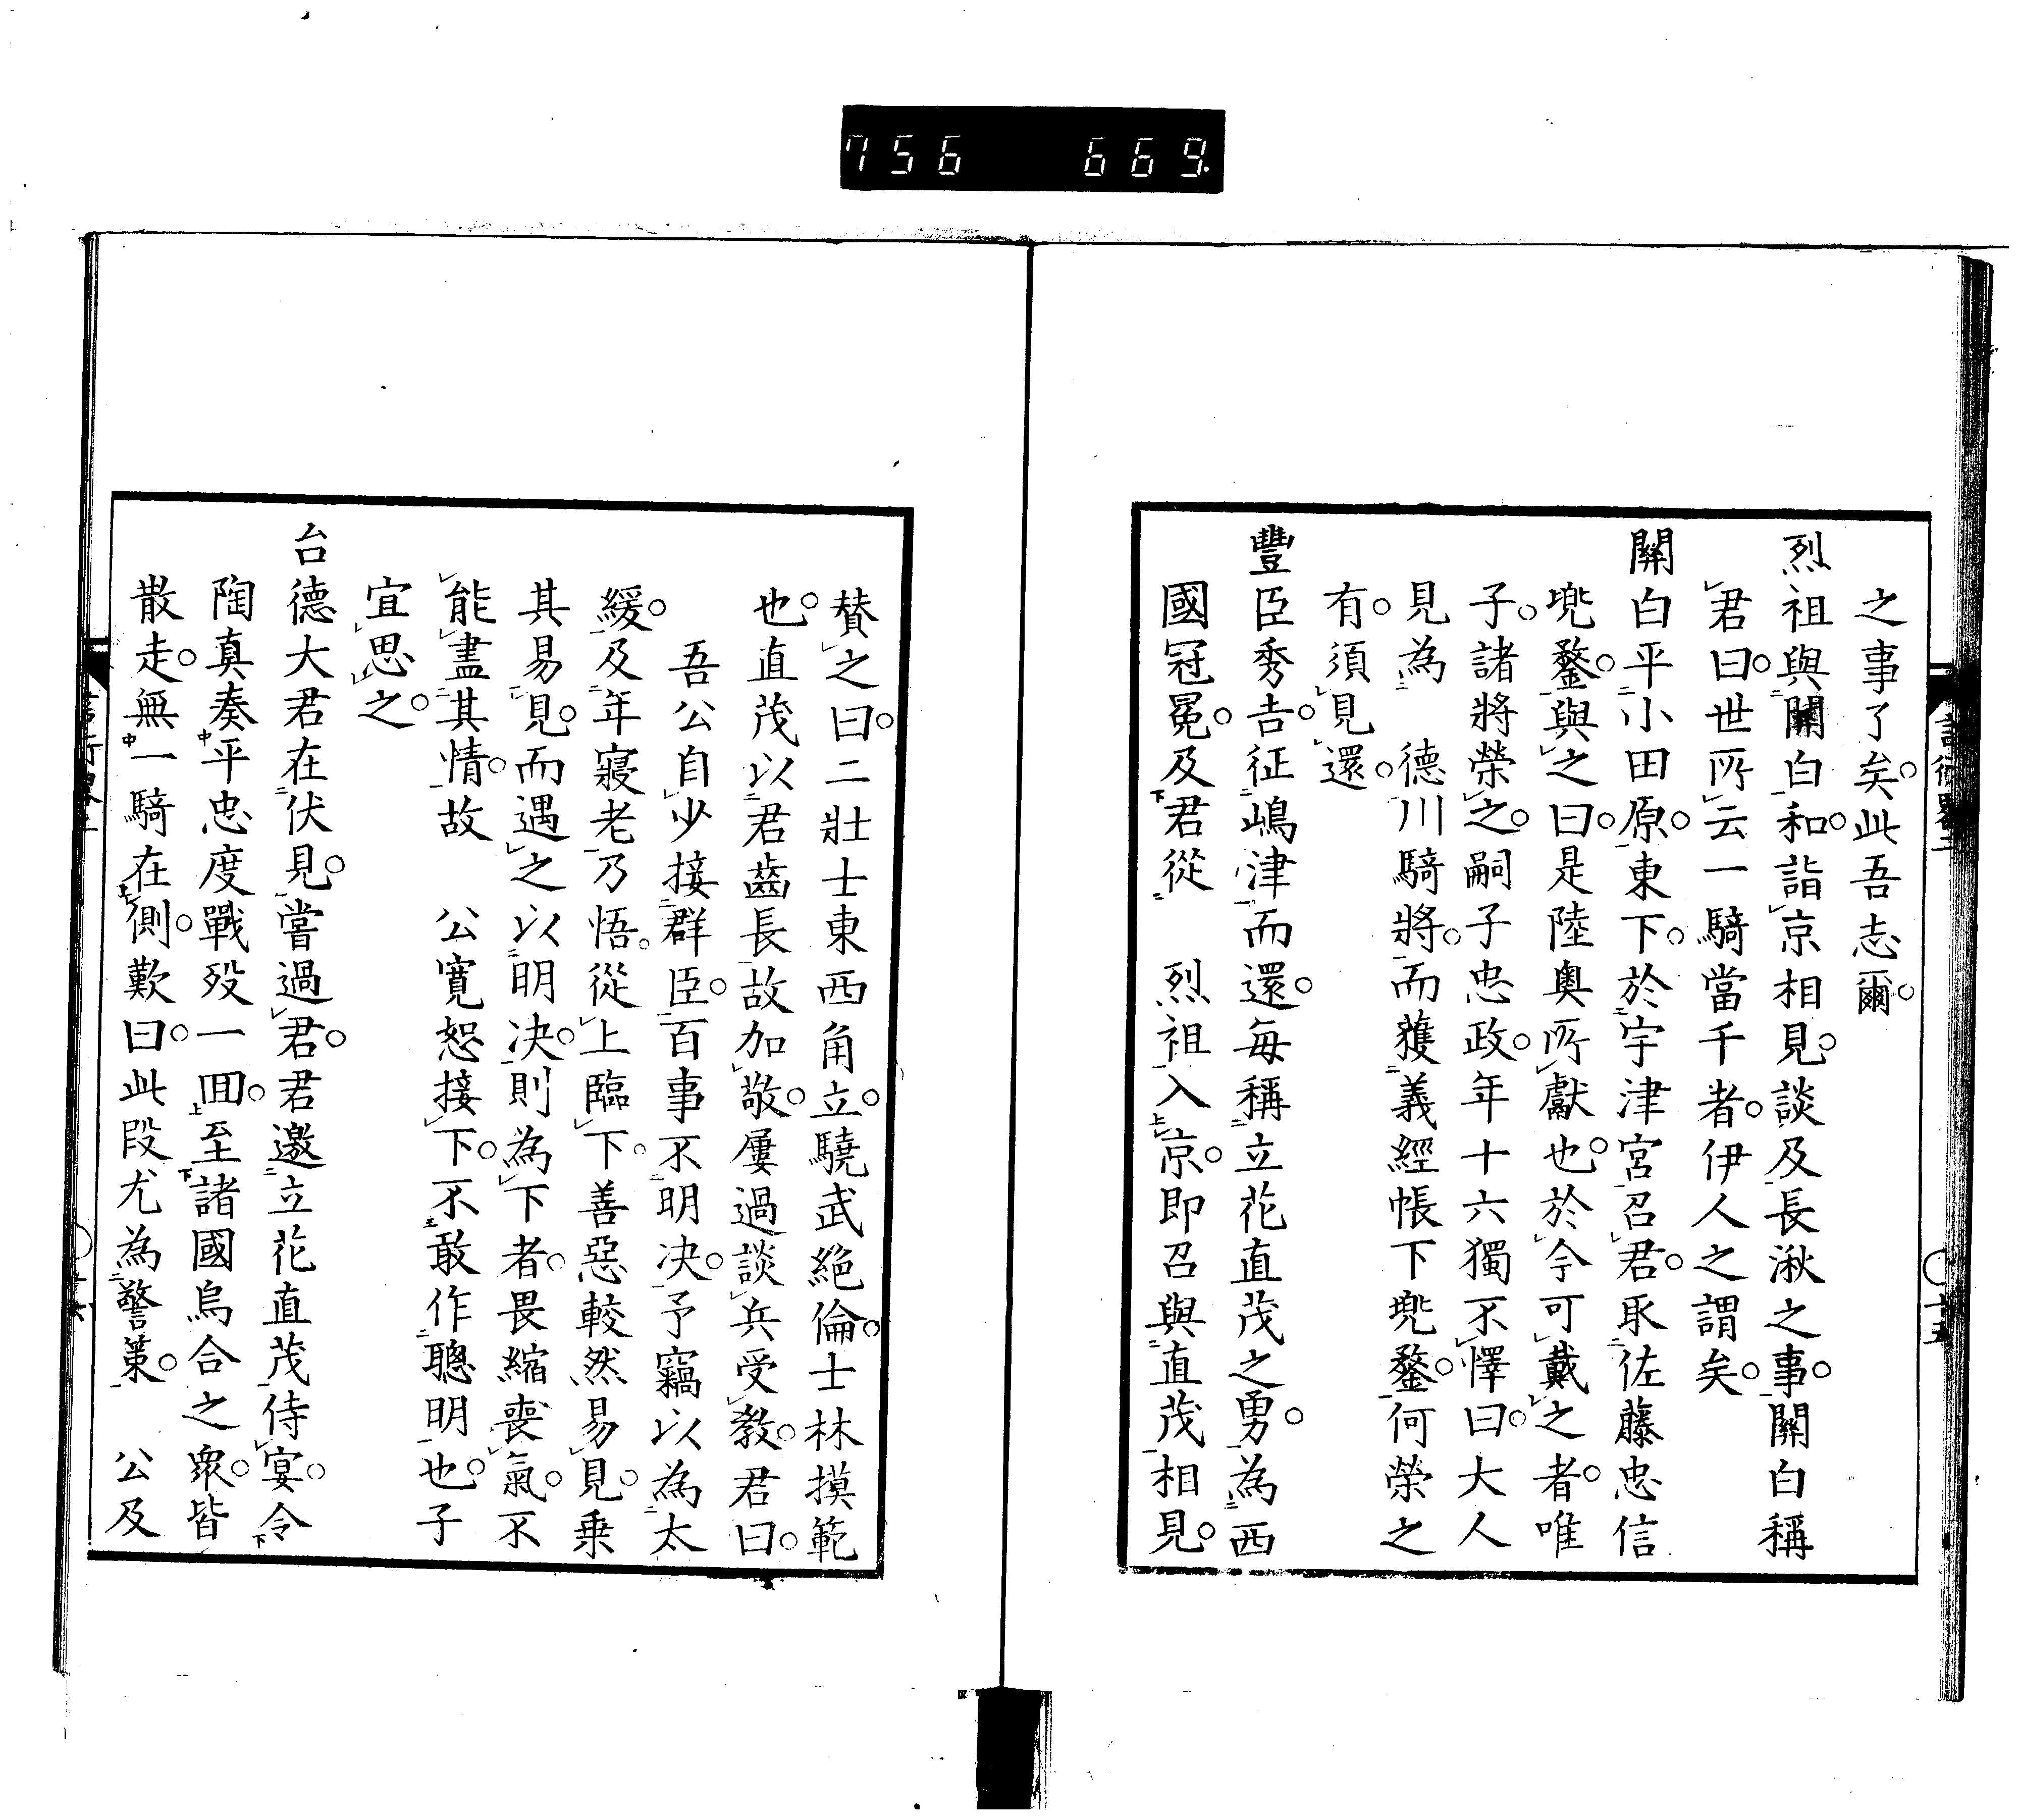 756 669
之事了矣。此吾志爾。
烈祖與關白和。詣京相見。談及長湫之事。關白稱
君曰。世所云一騎當千者。伊人之謂矣。
關白平小田原。東下。於宇津宮召君。取佐藤忠信
兜鍪。與之曰。是陸奧所獻也。於今可戴之者。唯
子。諸將榮之。嗣子忠政。年十六獨不懌曰。大人
見為 德川騎將。而獲義經帳下兜鍪。何榮之
有。須見還。
豐臣秀吉。征嶋津而還。每稱立花直茂之勇。為西
國冠冕。及君從 烈祖入京。即召與直茂相見。
贊之曰。二壯士東西角立。驍武絕倫。士林摸範
也。直茂以君齒長故加敬。屢過談兵受教。君曰。
吾公自少接群臣。百事不明決。予竊以為太
緩。及年寢老乃悟。從上臨下。善惡較然易見。乗
其易見。而遇之以明決。則為下者。畏縮喪氣。不
能盡其情。故 公寬恕接下。不敢作聰明也。子
宜思之。
台德大君在伏見。嘗過君。君邀立花直茂侍宴。令
陶真奏平忠度戰歿一囬。至諸國烏合之衆。皆
散走。無一騎在側。歎曰。此段尤為警策。 公及